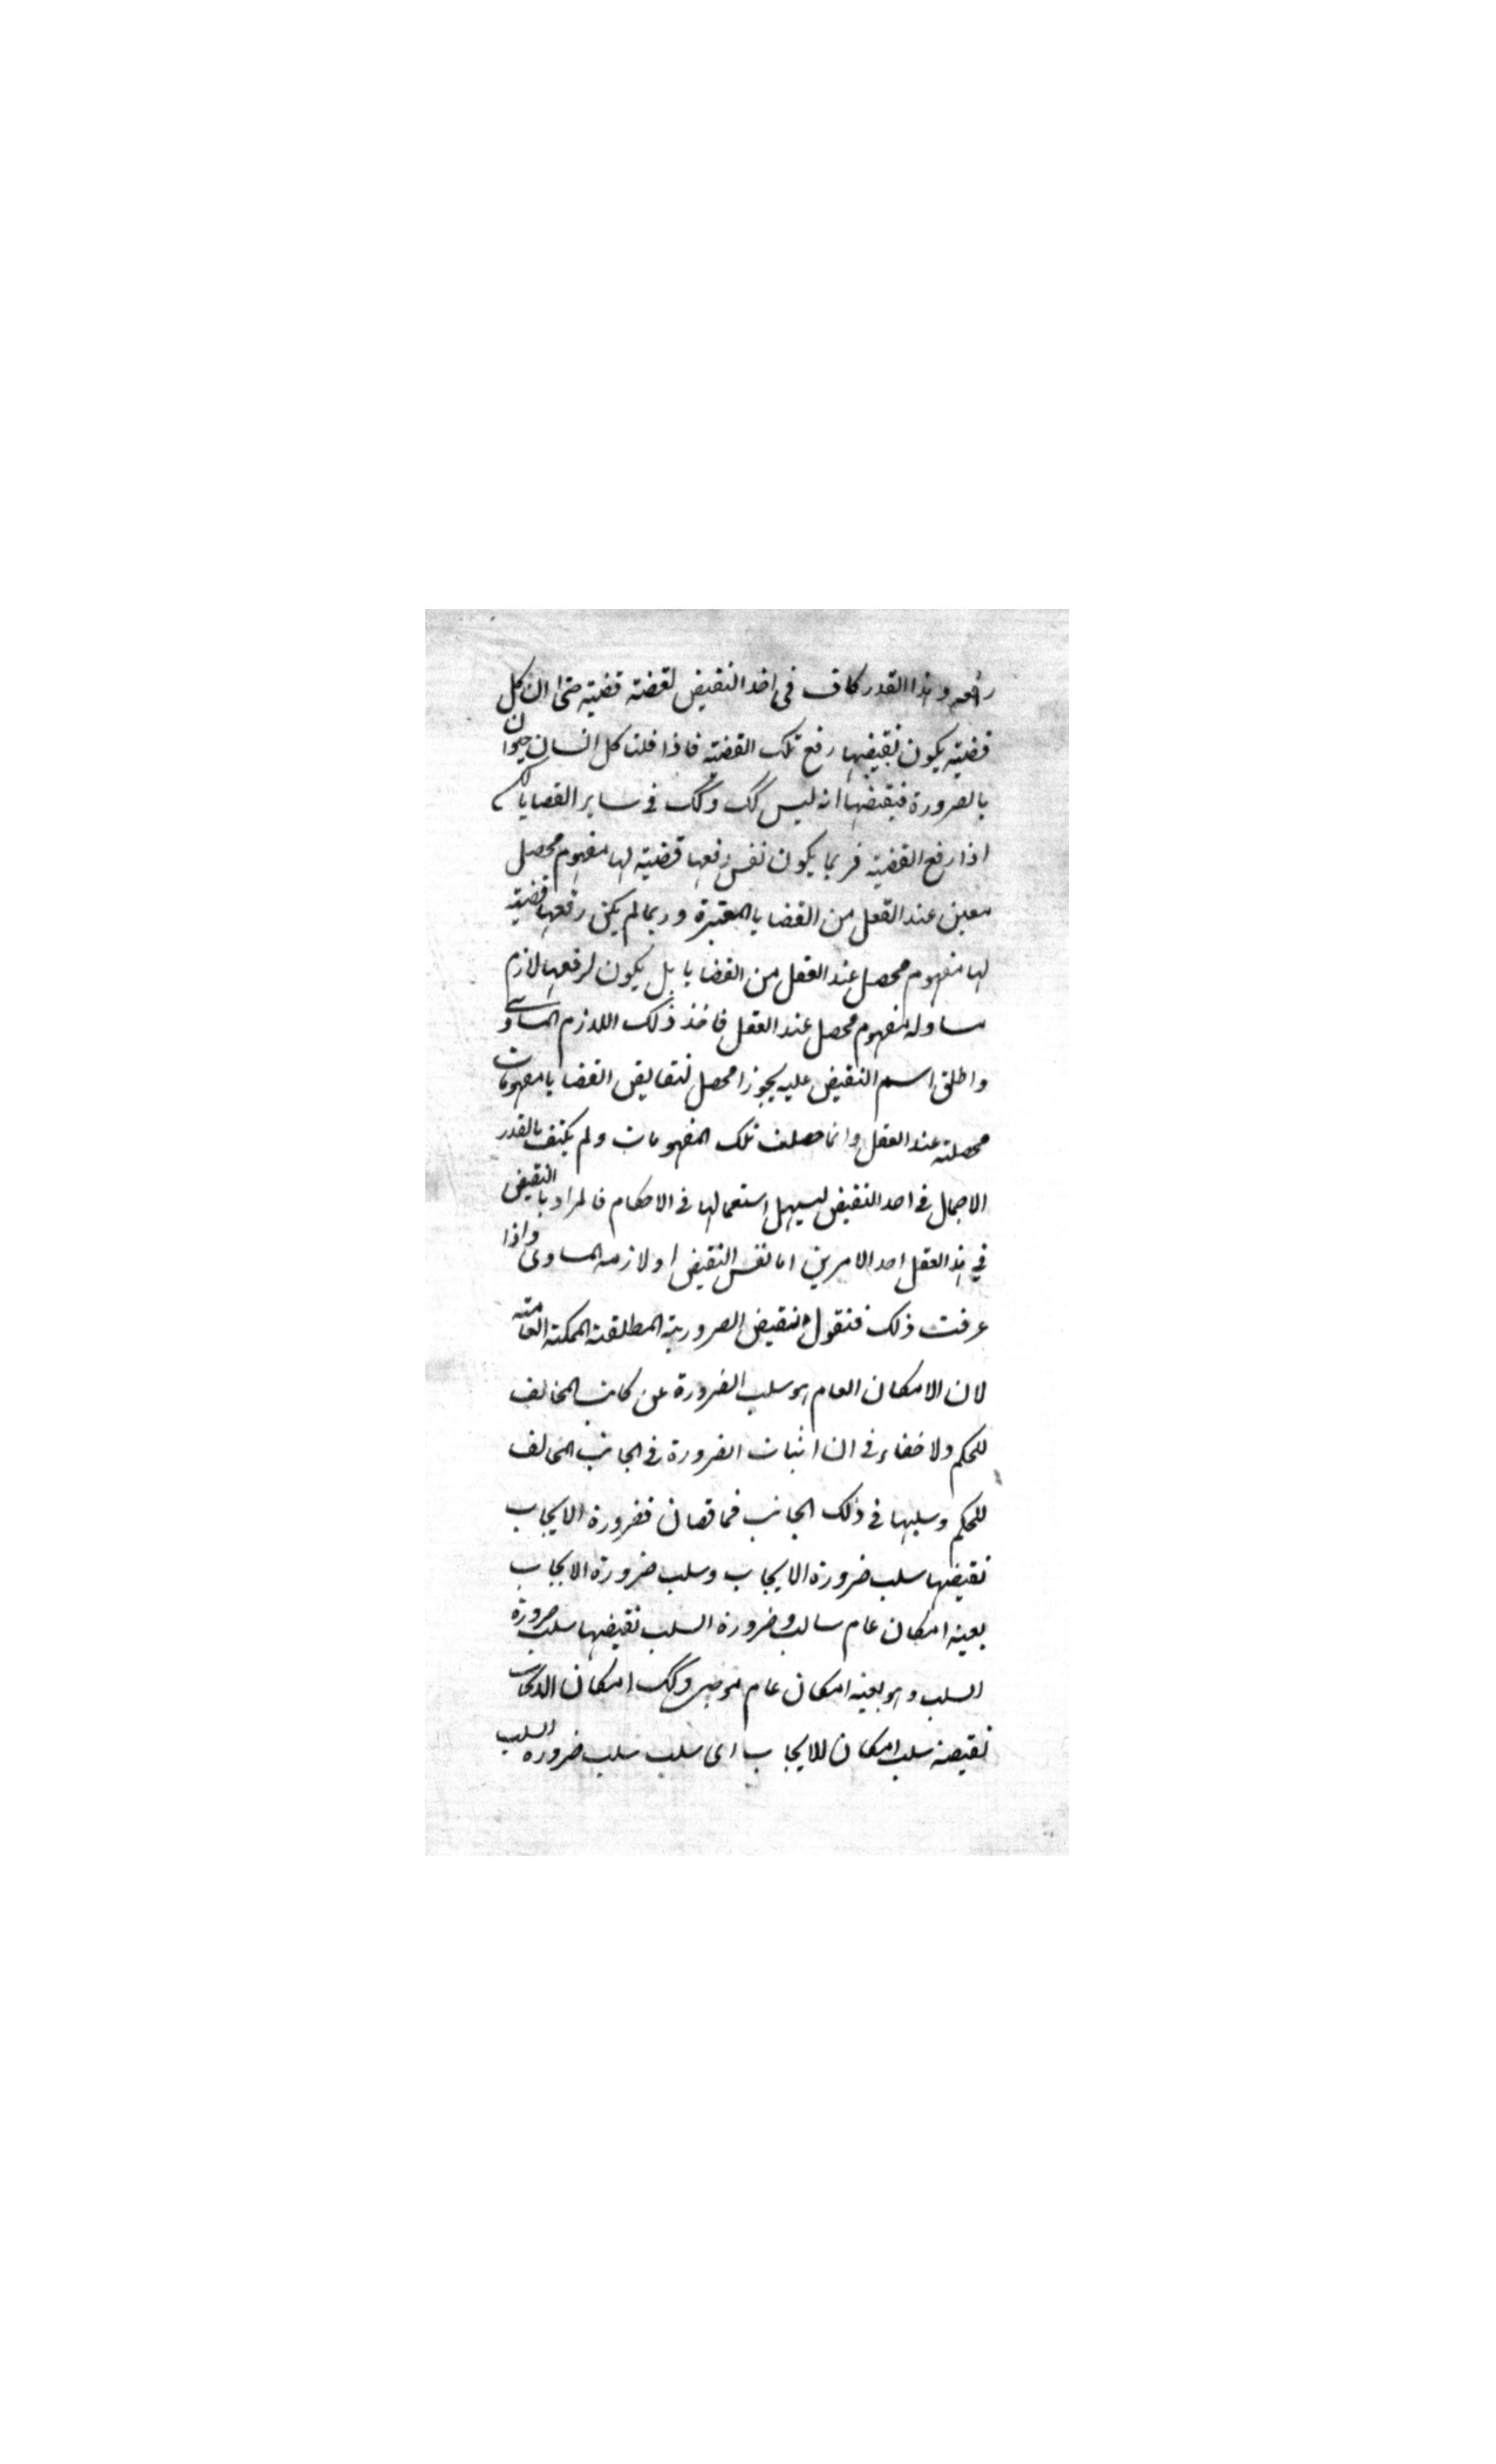 رفعه وهذا القدر كاف فى اخذ النقيض لقضية قضية حتى ان كل
قضية يكون نقيضها رفع تلك القضية فاذا قلنا كل انسان حيوان
بالضرورة فنقيضها انه ليس كك وكك فى ساير القضايا لكن
اذا رفع القضية فربما يكون نفس رفعها قضية لها مفهوم محصل
معين عند العقل من القضايا المعتبرة وربما لم يكن رفعها قضية
لها مفهوم محصل عند العقل من القضايا بل يكون لرفعها لازم
مساو له مفهوم محصل عند العقل فاخذ ذلك اللازم المساوى
واطلق اسم النقيض عليه تجوزا محصل لنقايض القضايا مفهومات
محصلة عند العقل وانما حصلت تلك المفهومات ولم يكتف بالقدر
الاجمال فى اخذ النقيض ليسهل استعمالها فى الاحكام فالمراد بالنقيض
في هذا العقل احد الامرين اما نفس النقيض او لازمه المساوى واذا
عرفت ذلك فنقول نقيض الضرورية المطلقة الممكنة العامة
لان الامكان العام هو سلب الضرورة عن جانب المخالف
للحكم ولا خفاء فى ان اثبات الضرورة فى الجانب المخالف
للحكم وسلبها فى ذلك الجانب مما قضان فضرورة الايجاب
نقيضها سلب ضرورة الايجاب وسلب ضرورة الايجاب
بعينه امكان عام سالب وضرورة السلب نقيضها سلب ضرورة
السلب وهو بعينه امكان عام موجب وكك امكان الايجاب
نقيضه سلب امكان للايجاب اى سلب سلب ضرورة السلب